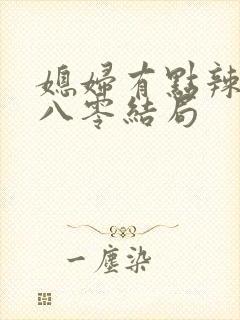 媳婦有點辣
八零結局
一塵染